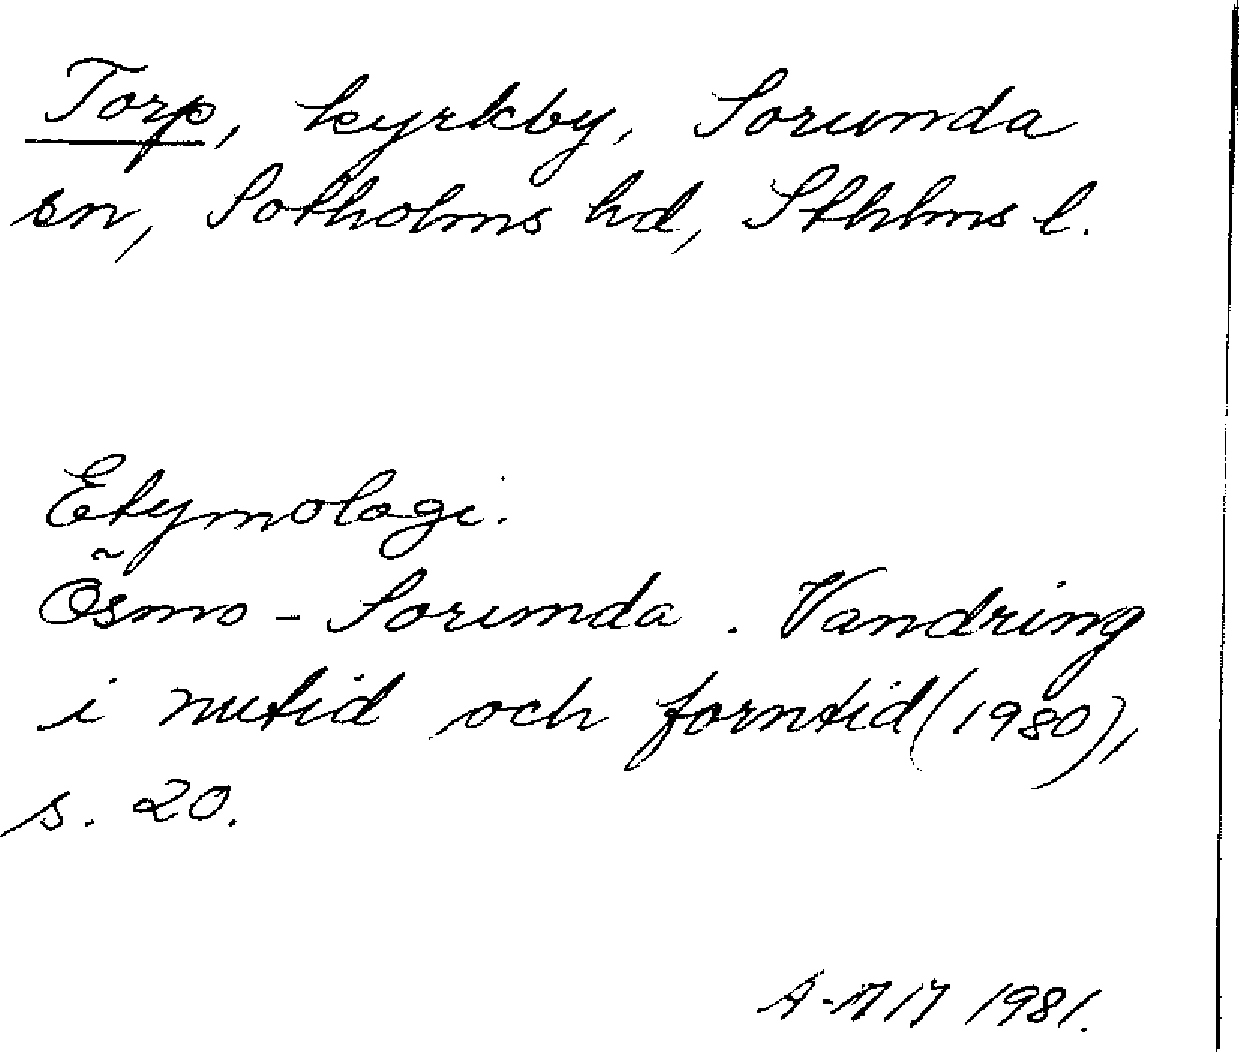 Torp, kyrkby, Sorunda
sn, Sotholms hd, Sthlms l.
Etymologi.
Ösmo - Sorunda. Vandring
i nutid och forntid (1980),
s. 20.
1981.